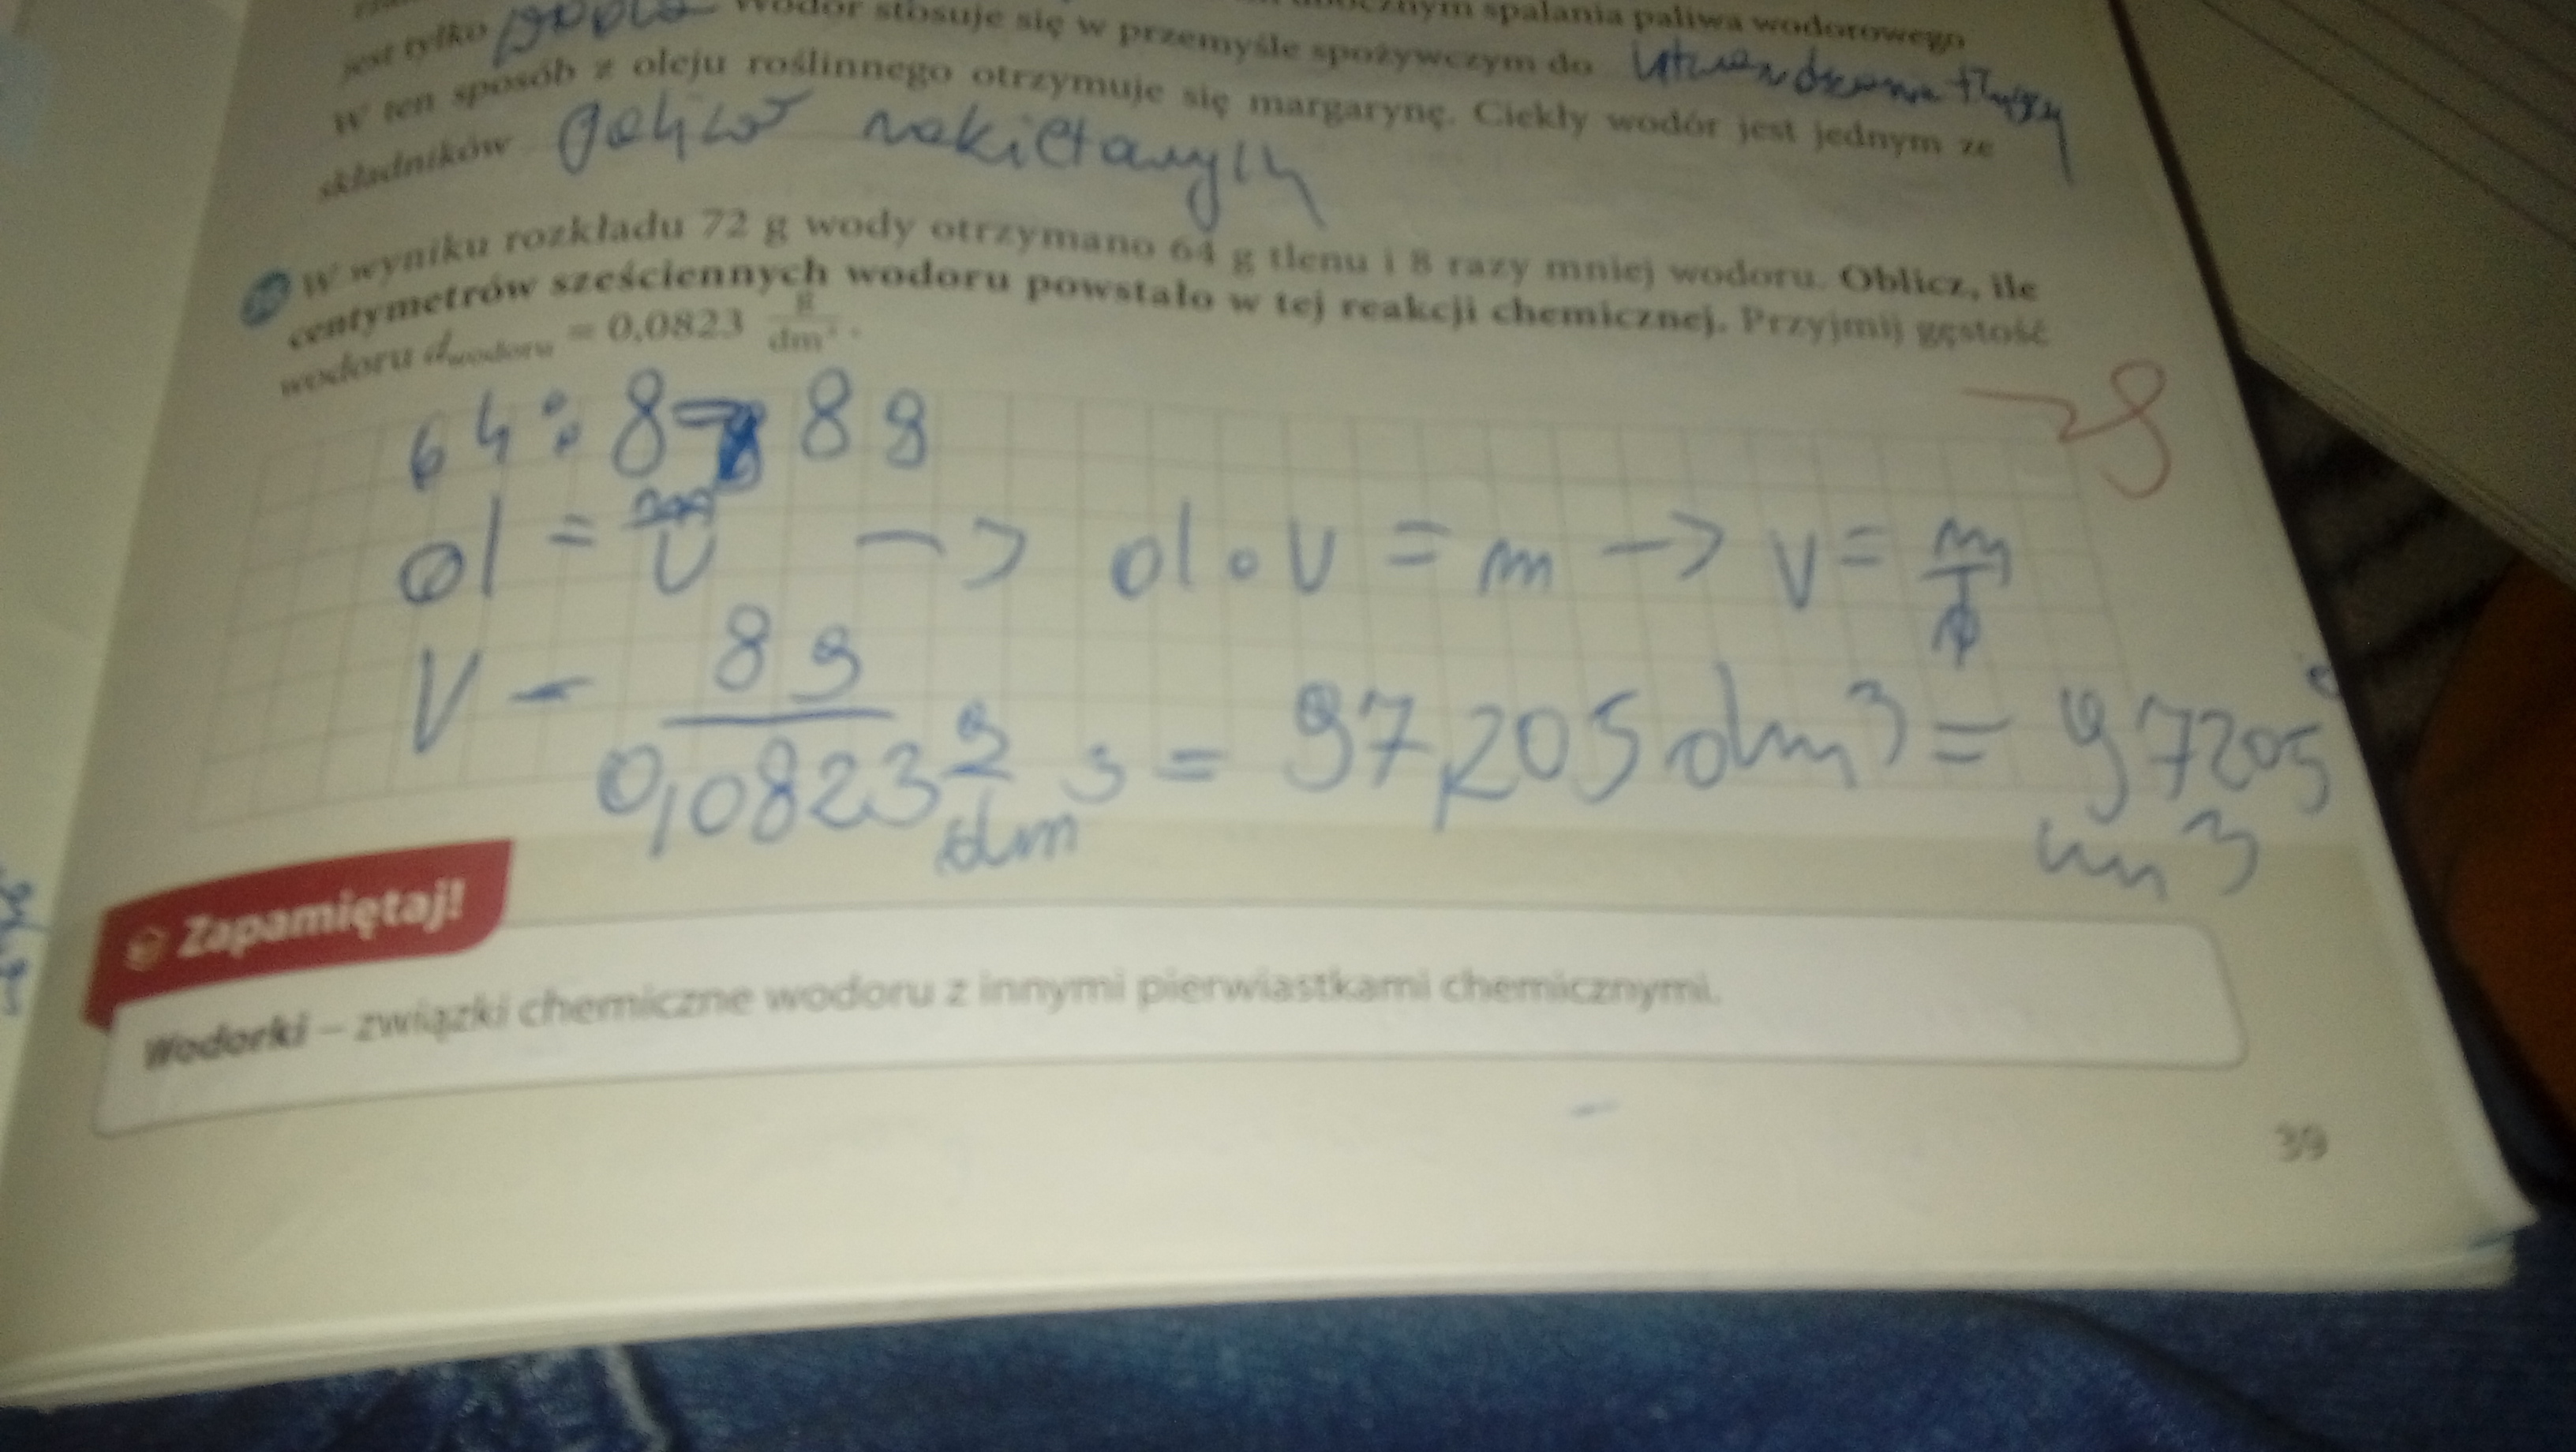 spalania paliwa wodorowego
jest tylko Wodór stosuje się w przemyśle spożywczym do utwardzania tłuszczy
W ten sposób z oleju roślinnego otrzymuje się margarynę. Ciekły wodór jest jednym ze
składników paliw rakietowych
W wyniku rozkładu 72 g wody otrzymano 64 g tlenu i 8 razy mniej wodoru. Oblicz, ile
centymetrów sześciennych wodoru powstało w tej reakcji chemicznej. Przyjmij gęstość
wodoru d wodoru = 0,0823 g/dm³.
64 : 8 = 8 g
d = m/V -> d • V = m -> V = m/d
V = 8 g / 0,0823 g/dm³ = 97,205 dm³ = 97205
cm³
Zapamiętaj!
Wodorki – związki chemiczne wodoru z innymi pierwiastkami chemicznymi.
39